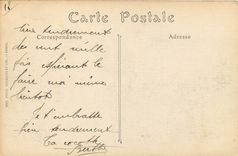 Carte Postale
Correspondance
Adresse
bien tendrement
des cent mille
fois espérant le
faire moi même
bientôt
Je t'embrasse
bien tendrement
Ta cocotte
Berthe